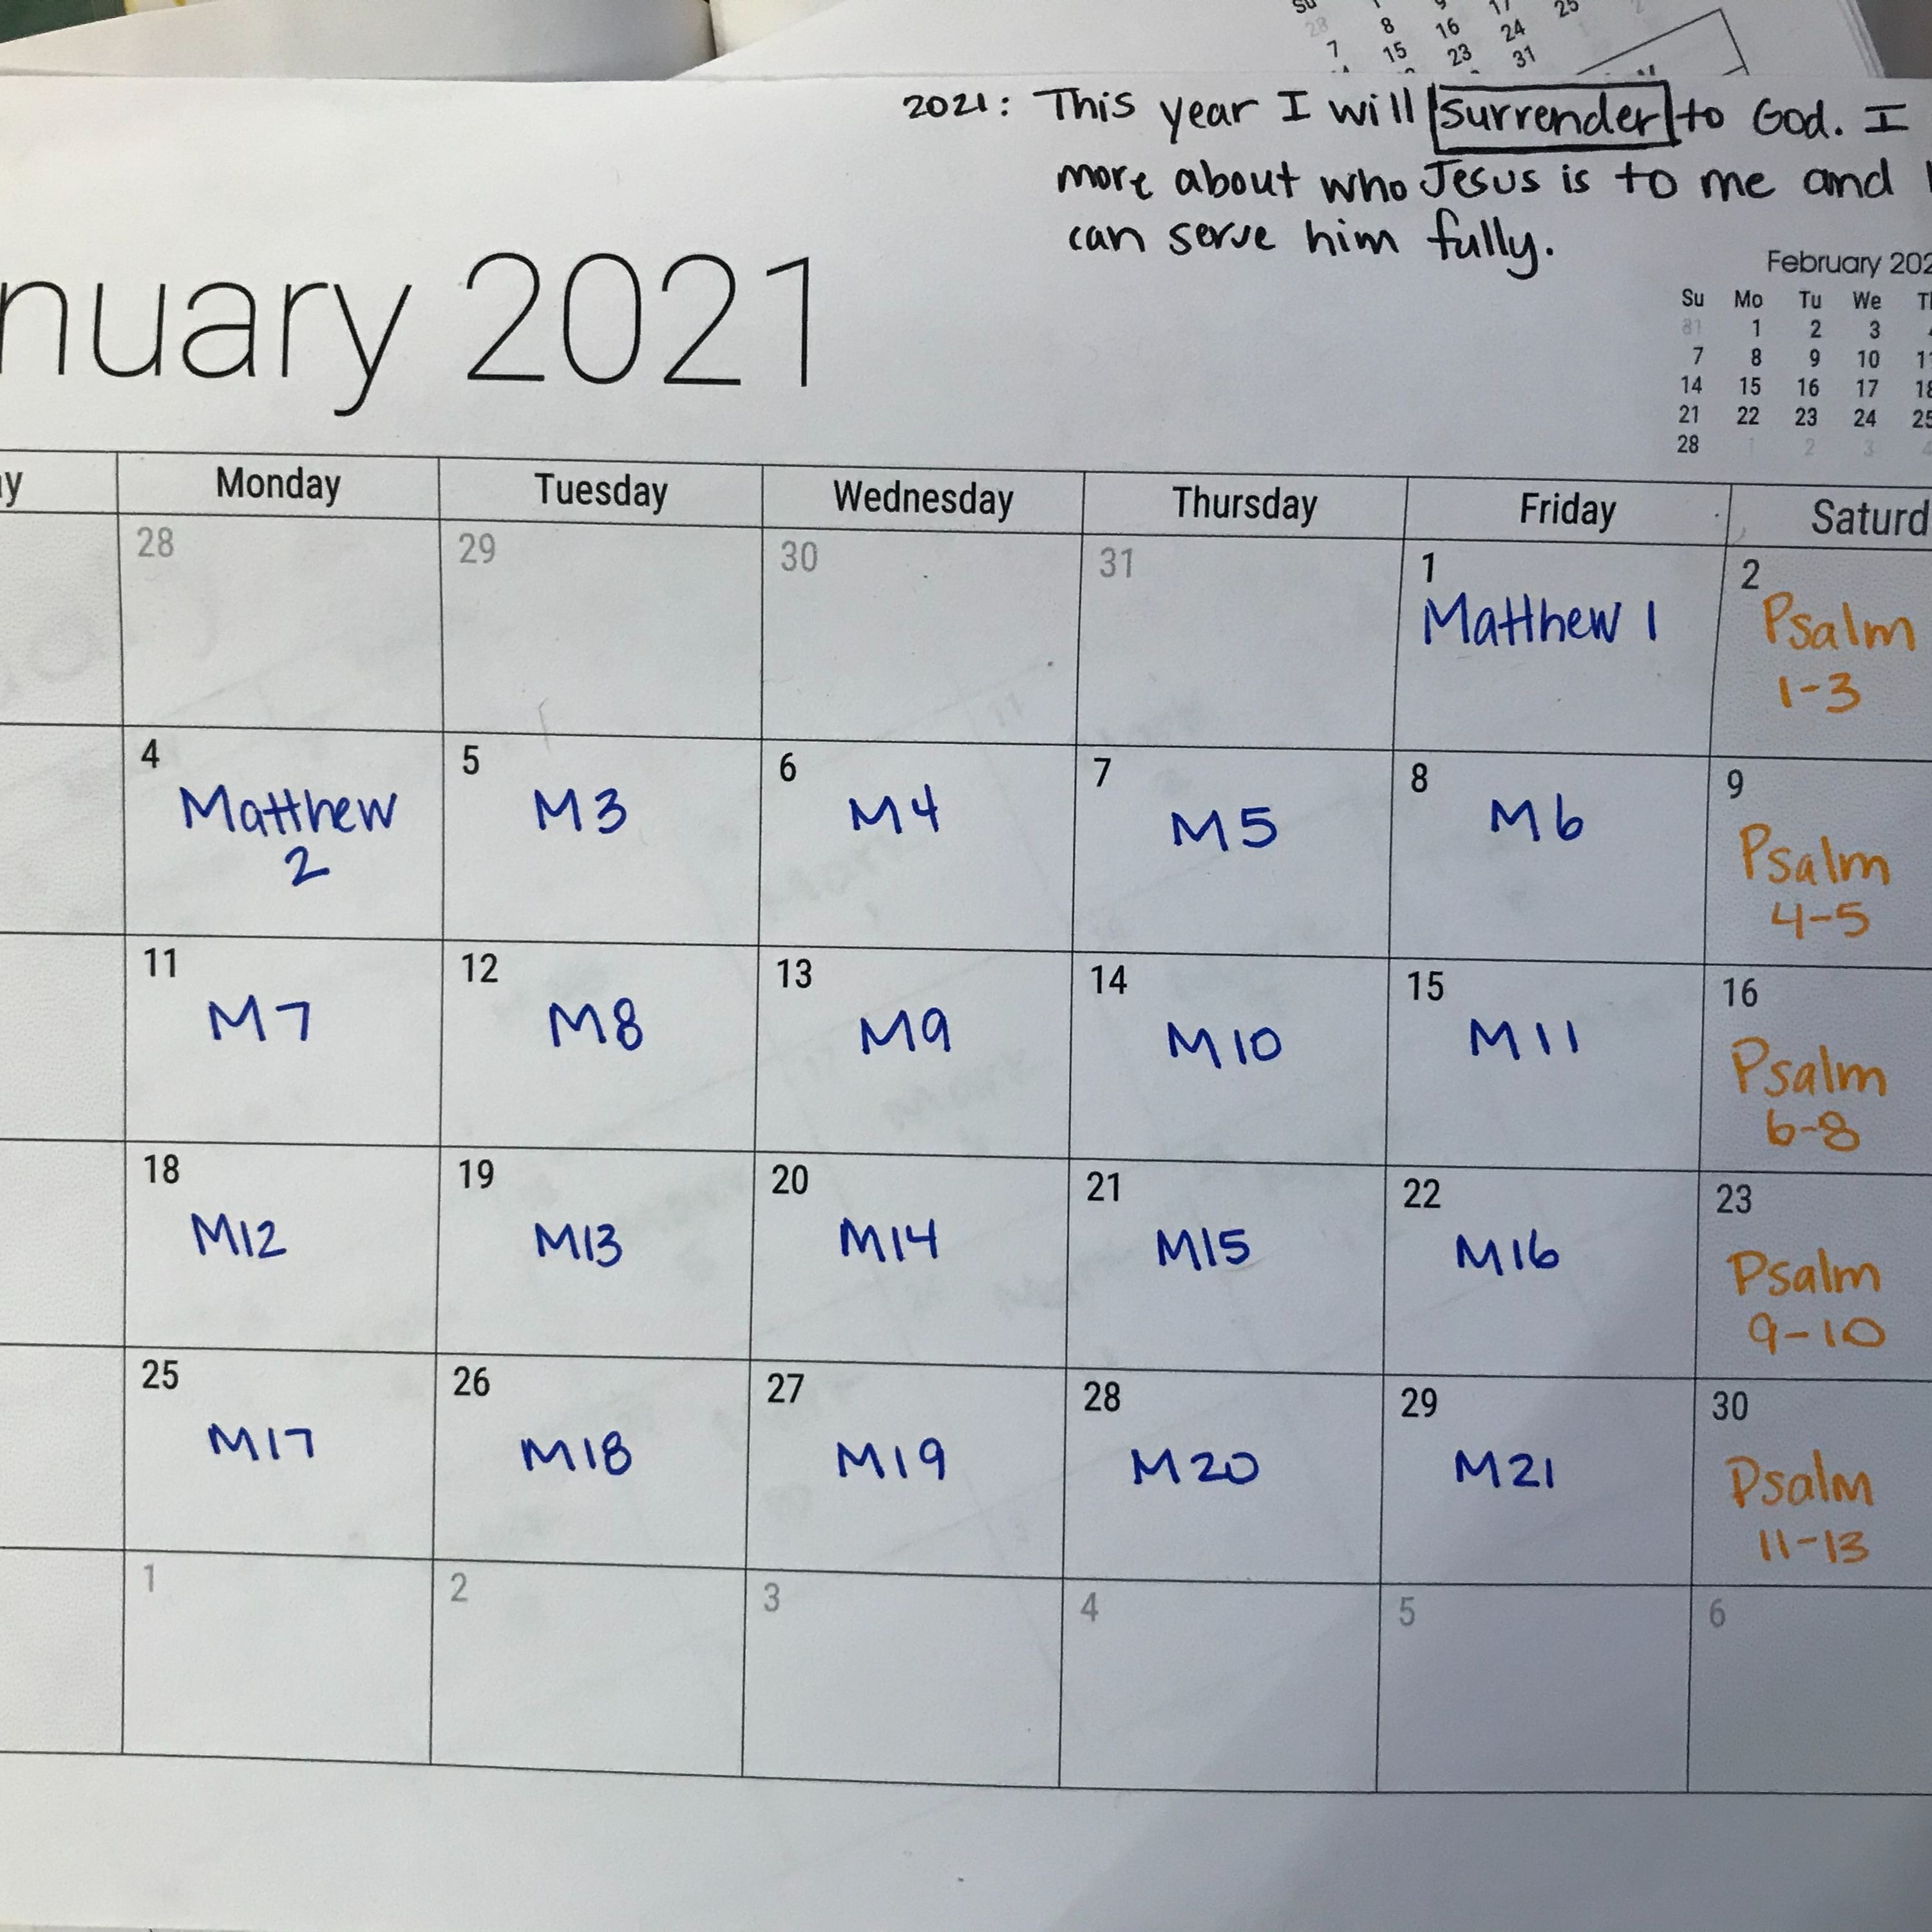 Su 1 9 17 25 2
28 8 16 24
7 15 23 31
2021: This year I will surrender to God. I
more about who Jesus is to me and
can serve him fully.
nuary 2021
February 202
Su Mo Tu We
31 1 2 3
7 8 9 10
14 15 16 17
21 22 23 24 25
28 1 2 3 4
y Monday Tuesday Wednesday Thursday Friday Saturd
28 29 30 31 1 2
Matthew 1 Psalm
1-3
4 5 6 7 8 9
Matthew M3 M4 M5 M6 Psalm
2 4-5
11 12 13 14 15 16
M7 M8 M9 M10 M11 Psalm
6-8
18 19 20 21 22 23
M12 M13 M14 M15 M16 Psalm
9-10
25 26 27 28 29 30
M17 M18 M19 M20 M21 Psalm
11-13
1 2 3 4 5 6